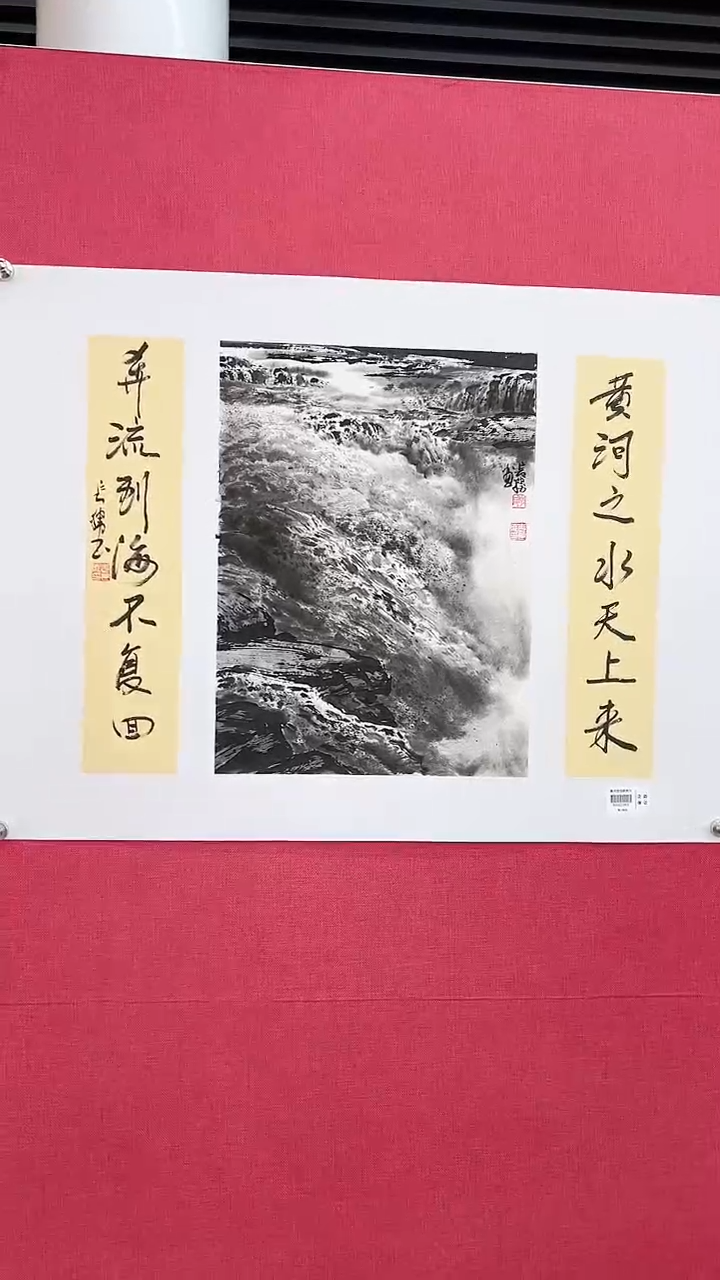 黄河之水天上来
奔流到海不复回